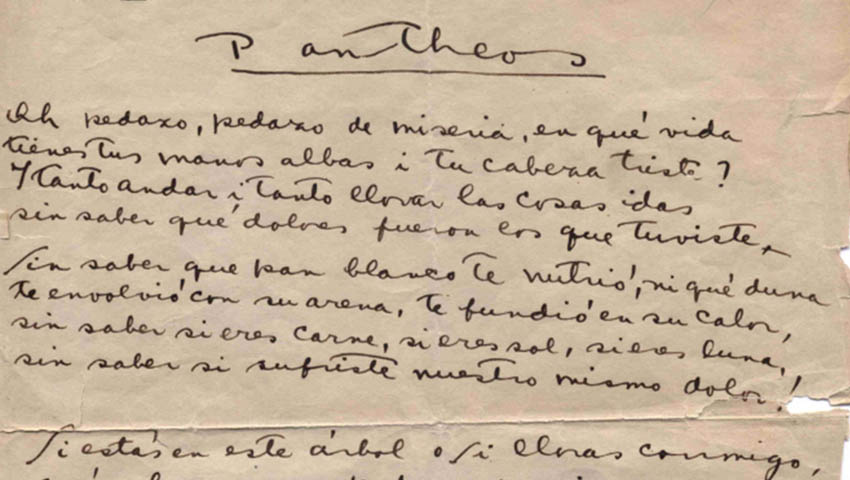 Pantheos
Oh pedazo, pedazo de miseria, en qué vida
tienes tus manos albas i tu cabeza triste?
Y tanto andar i tanto llorar las cosas idas
sin saber qué dolores fueron los que tuviste.
Sin saber que pan blanco te nutrió, ni qué duna
te envolvió con su arena, te fundió en su calor,
sin saber si eres carne, si eres sol, si eres luna,
sin saber si sufriste nuestro mismo dolor!
Si estás en este árbol o si lloras conmigo,